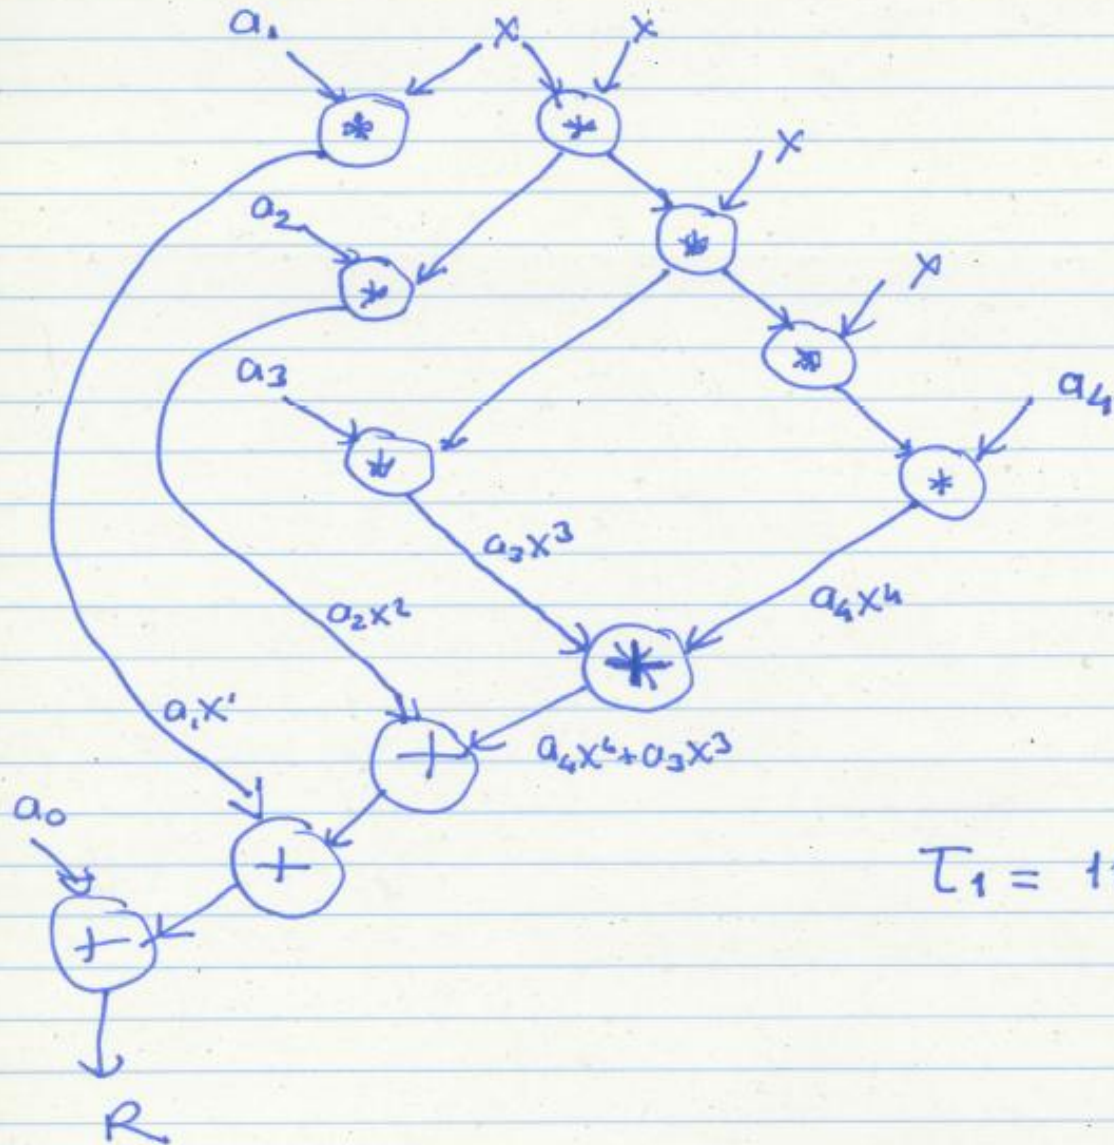 a₁ x x
* *
x
a₂ *
* x
a₃ *
* a₄
*
a₃x³
a₂x² a₄x⁴
a₁x¹
+ a₄x⁴+a₃x³
a₀
+
τ₁ = 11
+
R